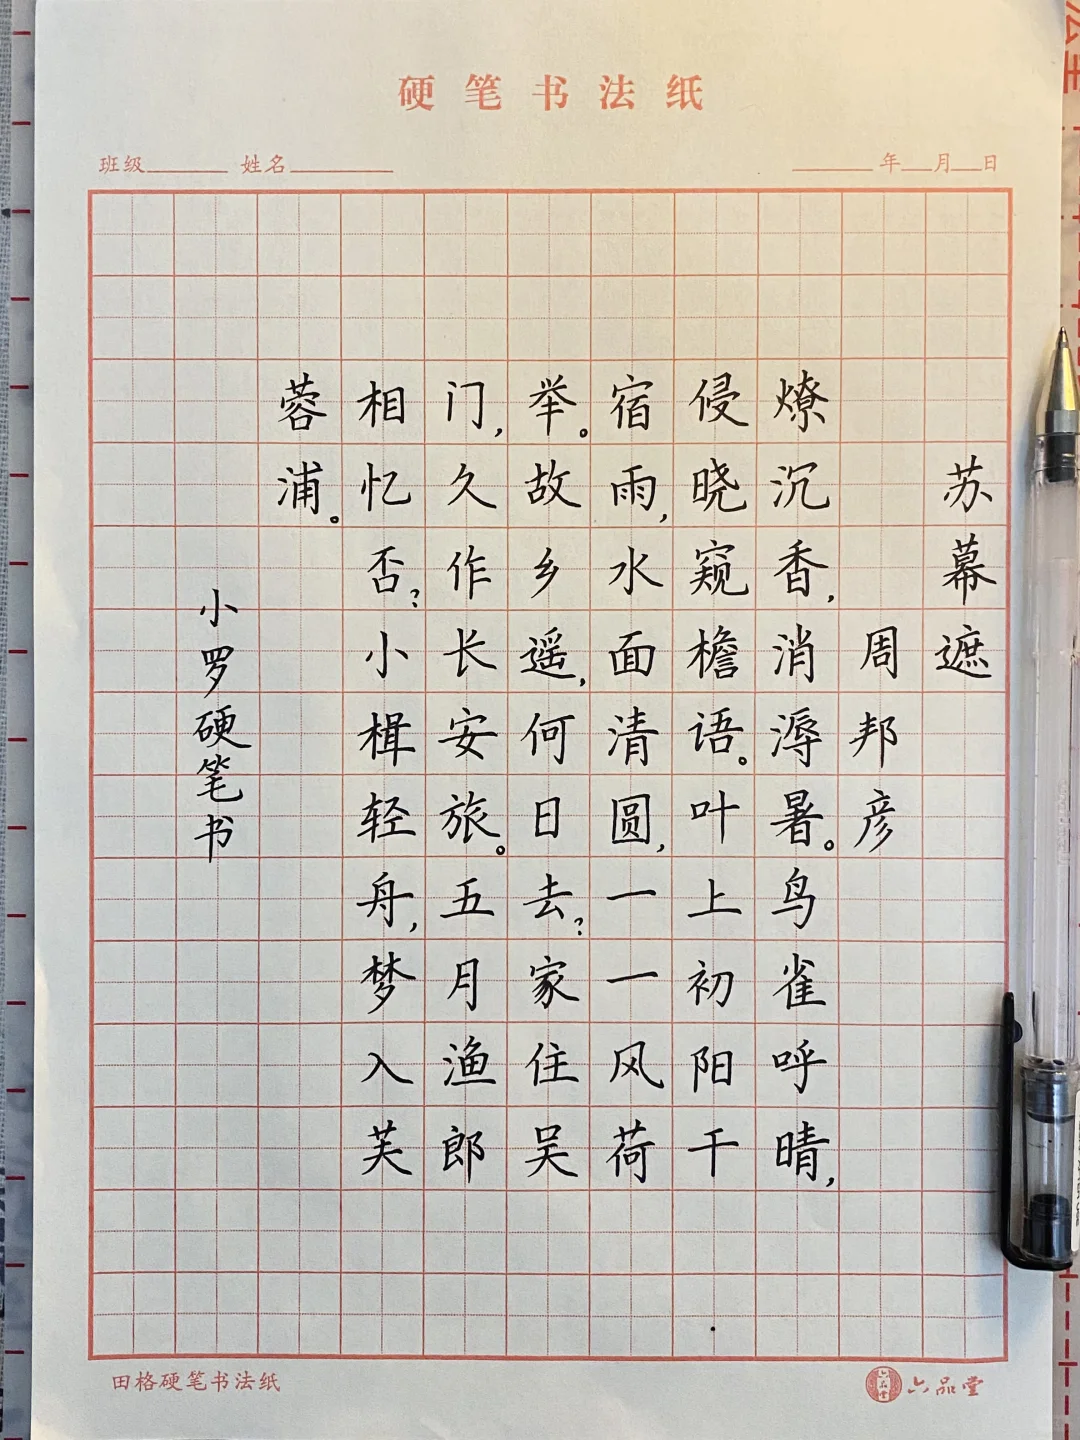 硬笔书法纸
班级 姓名 年 月 日
苏幕遮
周邦彦
燎沉香,消溽暑。鸟雀呼晴,
侵晓窥檐语。叶上初阳干
宿雨,水面清圆,一一风荷
举。故乡遥,何日去?家住吴
门,久作长安旅。五月渔郎
相忆否?小楫轻舟,梦入芙
蓉浦。
小罗硬笔书
田格硬笔书法纸
六品堂